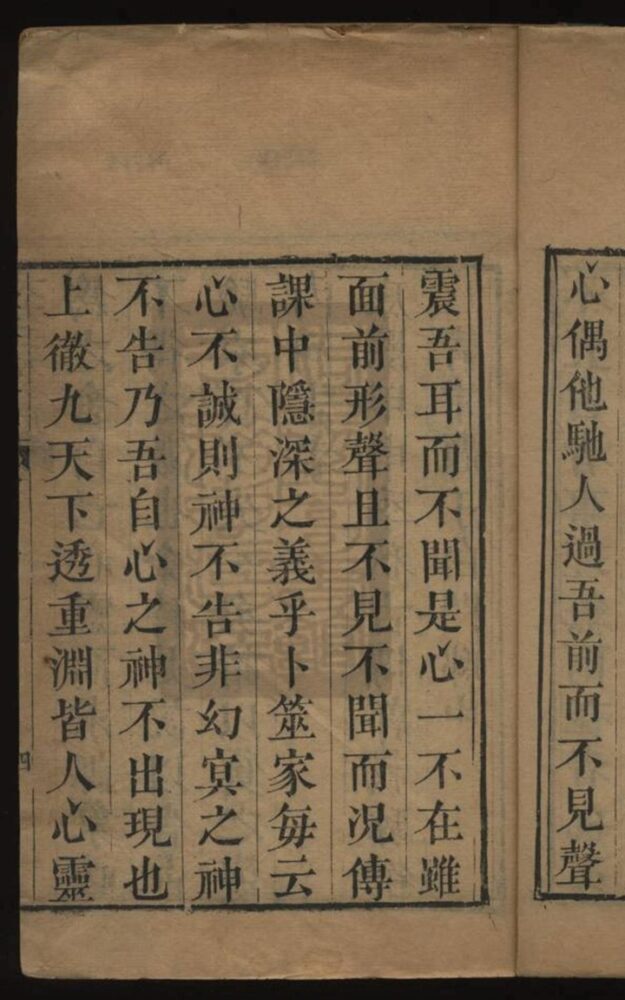 心偶他馳人過吾前而不見聲
震吾耳而不聞是心一不在雖
面前形聲且不見不聞而况傳
課中隱深之義乎卜筮家每云
心不誠則神不告非幻冥之神
不告乃吾自心之神不出現也
上徹九天下透重淵皆人心靈
四